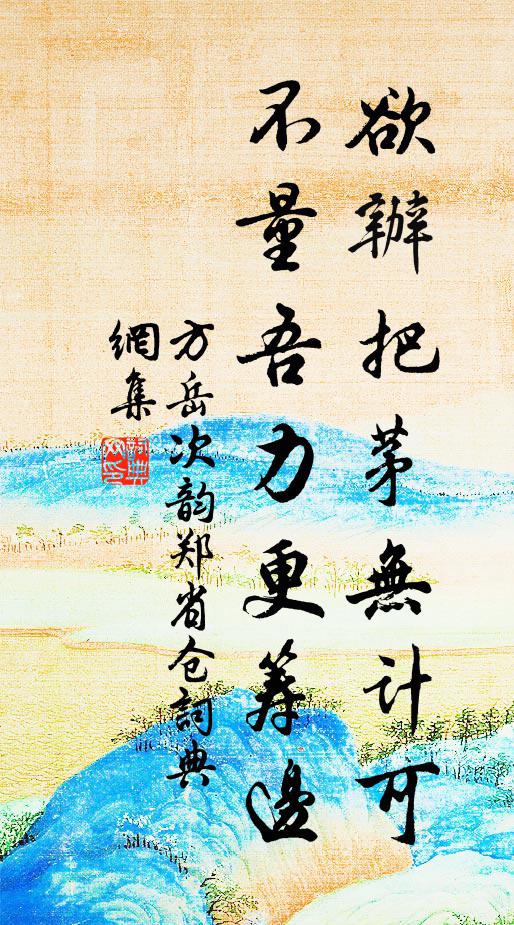 欲辦把茅無計可
不量吾力更筹邊
方岳次韵郑省仓詞典
網集